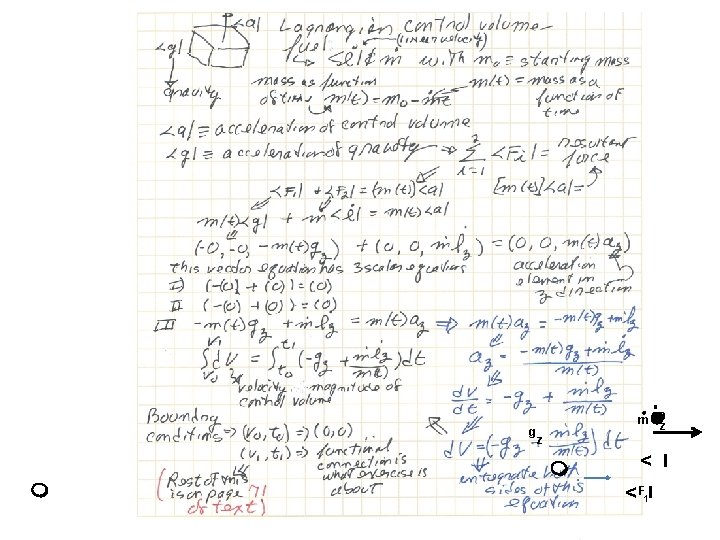 <a| Lagrangian control volume
<g| fuel (linear velocity)
<ṡėl| & ṁ with m₀ ≡ starting mass
gravity mass as function of time m(t) = m₀ - ṁt m(t) = mass as a function of time
<a| ≡ acceleration of control volume
<g| ≡ acceleration of gravity => Σ <Fi| = resultant force
i=1 2
<F₁| + <F₂| = (m(t))<a| [m(t)]<a| =
m(t)<g| + ṁ<l̇| = m(t)<a|
(-0, -0, -m(t)g_z) + (0, 0, ṁl̇_z) = (0, 0, m(t)a_z)
this vector equation has 3 scalar equations acceleration element in z direction
I) (-(0) + (0)) = (0)
II (-(0) + (0)) = (0)
III -m(t)g_z + ṁl̇_z = m(t)a_z => m(t)a_z = -m(t)g_z + ṁl̇_z
∫dV = ∫(-g_z + ṁl̇_z/m(t))dt a_z = (-m(t)g_z + ṁl̇_z)/m(t)
V₁ V₀ t₁ t₀
velocity magnitude of control volume dv/dt = -g_z + ṁl̇_z/m(t)
Boundry conditions => (V₀, t₀) => (0,0) dV = (-g_z + ṁl̇_z/m(t))dt
(V₁, t₁) => functional connection is what exercise is about
integrate both sides of this equation
(Rest of this is on page 71 of text)
ṁ z
g_z
< |
<F₁|